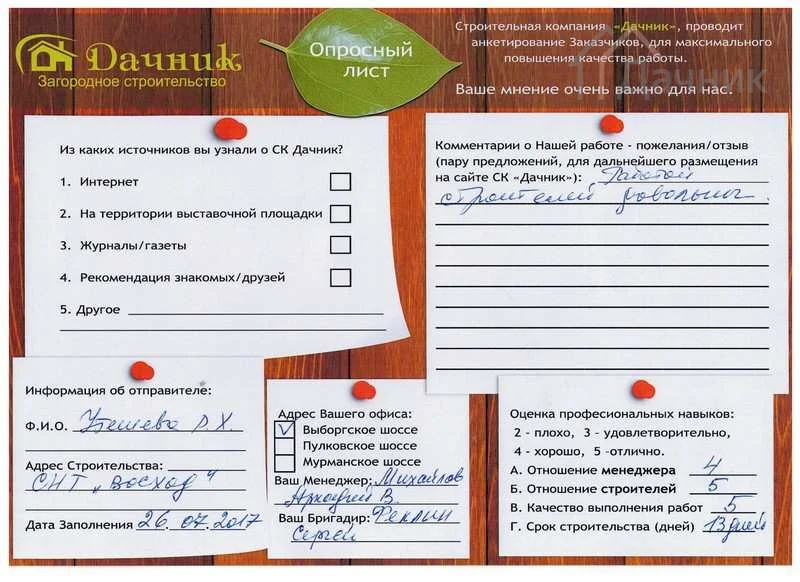 Дачник
Загородное строительство
Опросный
лист
Строительная компания «Дачник», проводит
анкетирование Заказчиков, для максимального
повышения качества работы.
Ваше мнение очень важно для нас.
Дачник
Из каких источников вы узнали о СК Дачник?
1. Интернет
2. На территории выставочной площадки
3. Журналы/газеты
4. Рекомендация знакомых/друзей
5. Другое
Комментарии о Нашей работе - пожелания/отзыв
(пару предложений, для дальнейшего размещения
на сайте СК «Дачник»): Работой
строителей довольны.
Информация об отправителе:
Ф.И.О. Р.Х.
Адрес Строительства:
СНТ "Восход"
Дата Заполнения 26.07.2017
Адрес Вашего офиса:
Выборгское шоссе
Пулковское шоссе
Мурманское шоссе
Ваш Менеджер: Михайлов
Аркадий В.
Ваш Бригадир: Феклин
Сергей
Оценка професиональных навыков:
2 - плохо, 3 - удовлетворительно,
4 - хорошо, 5 -отлично.
А. Отношение менеджера 4
Б. Отношение строителей 5
В. Качество выполнения работ 5
Г. Срок строительства (дней) 13 дней